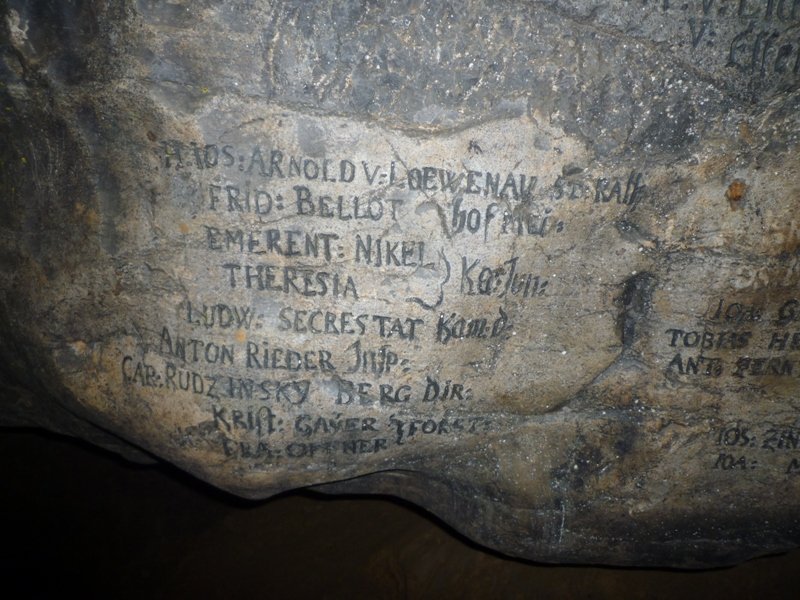 V: Essen
IOS: ARNOLD V: LOEWENAU ST: RATH
FRID: BELLOT } hofMei:
EMERENT: NIKEL
THERESIA } Ka: Jun:
LUDW: SECRESTAT Kam: d:
ANTON RIEDER Jnsp:
CAR: RUDZINSKY BERG DIR:
KRIST: GAYER FORST:
FRA: OFFNER
IOA: G
TOBIAS HE
ANT: PERN
IOS: ZIN
IOA: M